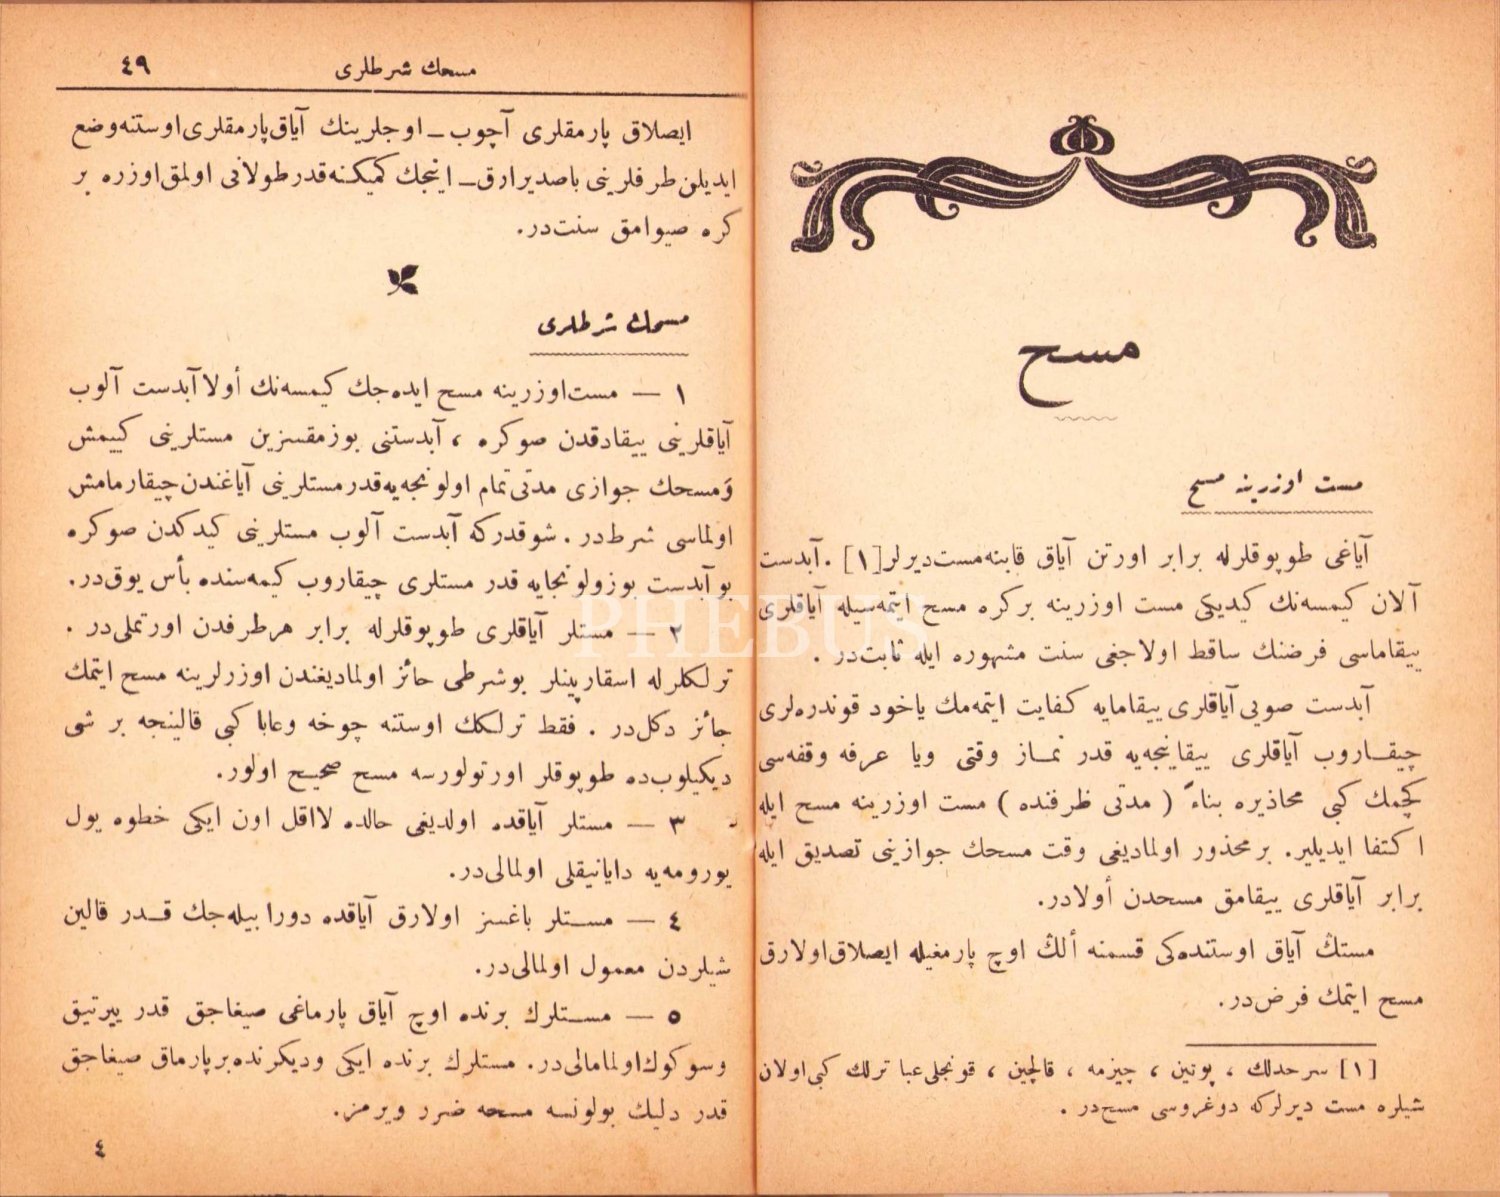 مسح
مست اوزرینه مسح
آیاغی طوپوقلرله برابر اورتن آیاق قابنه مست دیرلر [١] . آبدست
آلان کیمسه‌نك کیدیکی مست اوزرینه برکره مسح ایتمه‌سیله آیاقلری
ییقاماسی فرضنك ساقط اولاجغی سنت مشهوره ایله ثابت‌در .
آبدست صویی آیاقلری ییقامایه کفایت ایتمه‌مك یاخود قوندره‌لری
چیقاروب آیاقلری ییقاینجه‌یه قدر نماز وقتی ویا عرفه وقفه‌سی
کچمك کبی محاذیره بناءً ( مدتی ظرفنده ) مست اوزرینه مسح ایله
اکتفا ایدیلیر. برمحذور اولمادیغی وقت مسحك جوازینی تصدیق ایله
برابر آیاقلری ییقامق مسحدن أولادر.
مستڭ آیاق اوستنده‌کی قسمنه ألڭ اوچ پارمغیله ایصلاق اولارق
مسح ایتمك فرض‌در.
[١] سرحدلك ، پوتین ، چیزمه ، قالچین ، قونجلی عبا ترلك کبی اولان
شیلره مست دیرلرکه دوغروسی مسح‌در .
مسحك شرطلری
٤٩
ایصلاق پارمقلری آچوب ـ اوجلرینك آیاق پارمقلری اوستنه وضع
ایدیلن طرفلرینی باصدیرارق ـ اینجك کمیکنه قدر طولانی اولمق اوزره بر
کره صیوامق سنت‌در.
مسحك شرطلری
١ — مست اوزرینه مسح ایده‌جك کیمسه‌نك أولا آبدست آلوب
آیاقلرینی ییقادقدن صوکره ، آبدستنی بوزمقسزین مستلرینی کییمش
وَمسحك جوازی مدتی تمام اولونجه‌یه قدر مستلرینی آیاغندن چیقارمامش
اولماسی شرط‌در . شوقدرکه آبدست آلوب مستلرینی کیدکدن صوکره
بوآبدست بوزولونجایه قدر مستلری چیقاروب کیمه‌سنده بأس یوق‌در.
٢ — مستلر آیاقلری طوپوقلرله برابر هرطرفدن اورتملی‌در .
ترلکلرله اسقارپینلر بوشرطی حائز اولمادیغندن اوزرلرینه مسح ایتمك
جائز دکل‌در . فقط ترلکك اوستنه چوخه وعابا کبی قالینجه بر شی
دیکیلوب‌ده طوپوقلر اورتولورسه مسح صحیح اولور.
٣ — مستلر آیاقده اولدیغی حالده لااقل اون ایکی خطوه یول
یورومه‌یه دایانیقلی اولمالی‌در.
٤ — مستلر باغسز اولارق آیاقده دورابیله‌جك قدر قالین
شیلردن معمول اولمالی‌در.
٥ — مستلرك برنده اوچ آیاق پارماغی صیغاجق قدر ییرتیق
وسوکوك اولمامالی‌در. مستلرك برنده ایکی ودیکرنده برپارماق صیغاجق
قدر دلیك بولونسه مسحه ضرر ویرمز.
٤
PHEBUS